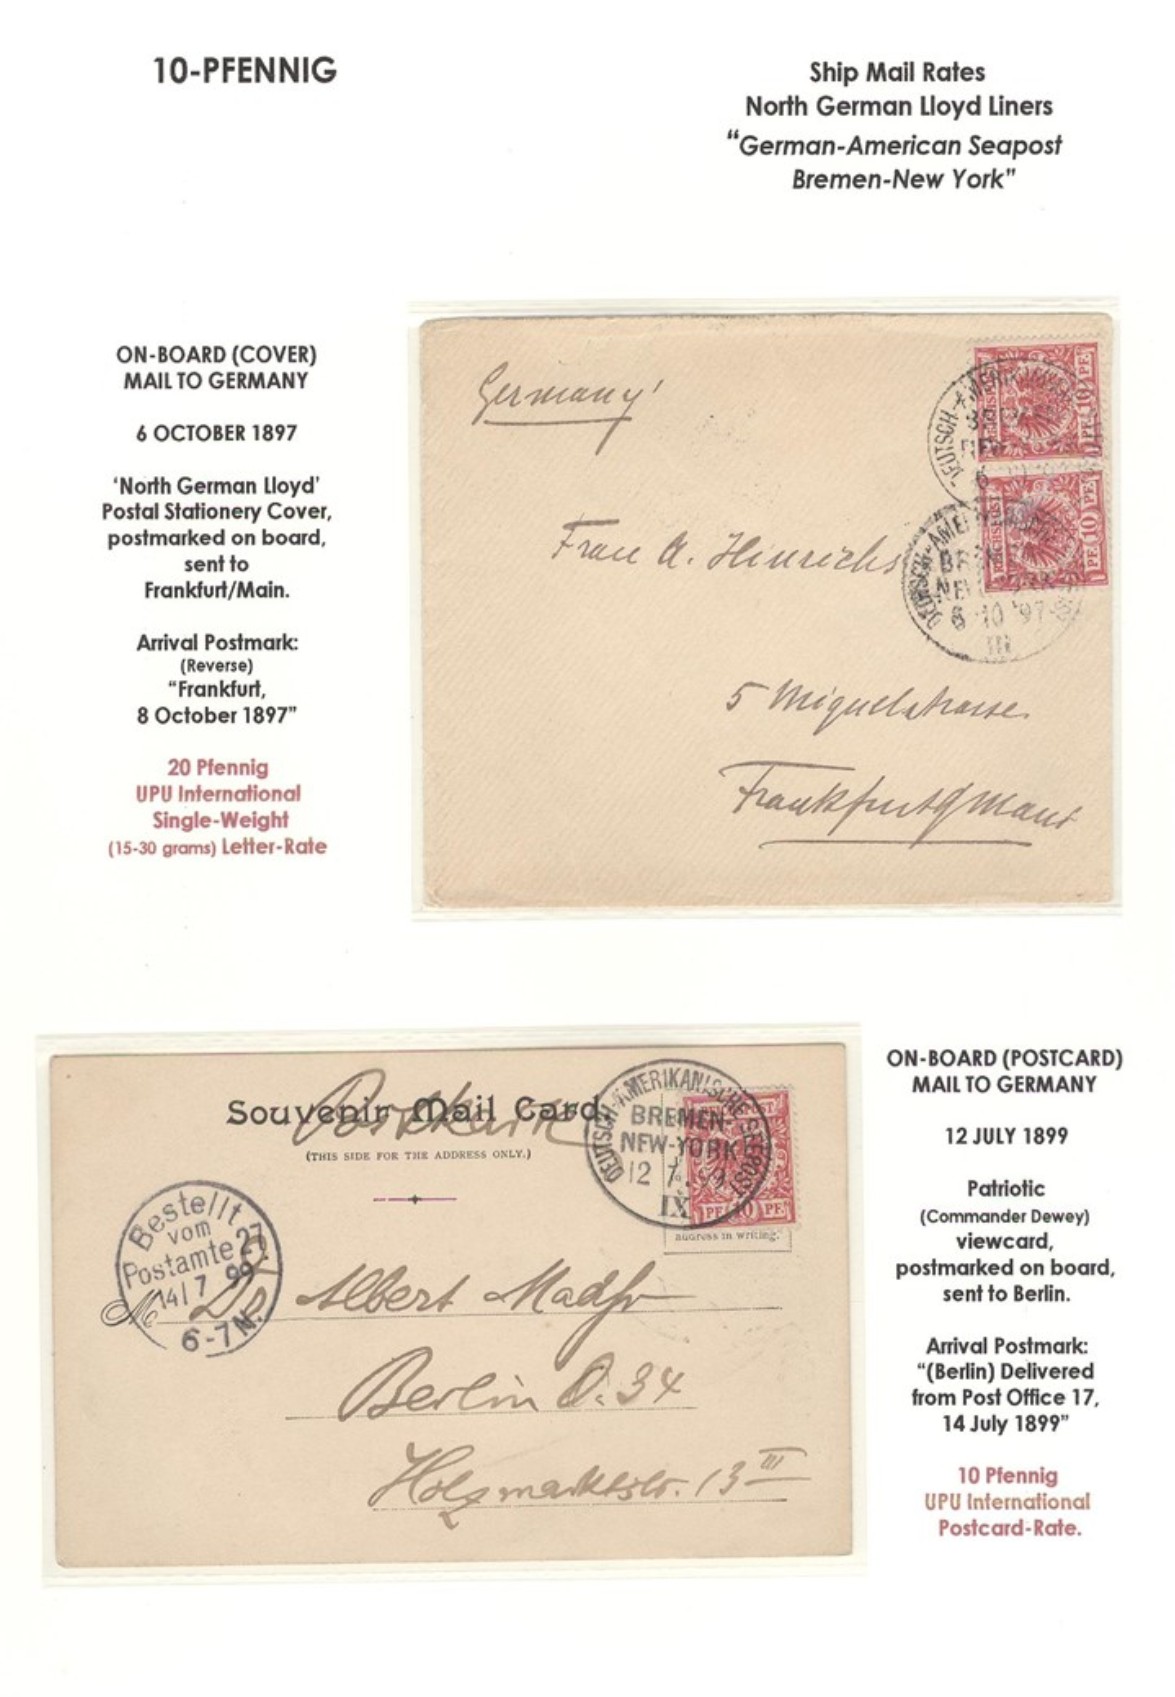 10-PFENNIG
Ship Mail Rates
North German Lloyd Liners
“German-American Seapost
Bremen-New York”
ON-BOARD (COVER)
MAIL TO GERMANY
6 OCTOBER 1897
‘North German Lloyd’
Postal Stationery Cover,
postmarked on board,
sent to
Frankfurt/Main.
Arrival Postmark:
(Reverse)
“Frankfurt,
8 October 1897”
20 Pfennig
UPU International
Single-Weight
(15-30 grams) Letter-Rate
Germany
Frau A. Hinrichs
5 Miquelstrasse
Frankfurt a/Main
10 PF
10 PF
DEUTSCH-AMERIKANISCHE
BREMEN
NEW-YORK
6 10 97
III
Souvenir Mail Card.
Postkarte
(THIS SIDE FOR THE ADDRESS ONLY.)
DEUTSCH-AMERIKANISCHE SEEPOST
BREMEN-
NEW-YORK
12 7 99
IX
PF 10 PF
address in writing.
Bestellt
vom
Postamte 27
14/7 99
6-7N.
M Dr. Albert
Berlin O. 34
Holzmarktstr. 13 III
ON-BOARD (POSTCARD)
MAIL TO GERMANY
12 JULY 1899
Patriotic
(Commander Dewey)
viewcard,
postmarked on board,
sent to Berlin.
Arrival Postmark:
“(Berlin) Delivered
from Post Office 17,
14 July 1899”
10 Pfennig
UPU International
Postcard-Rate.